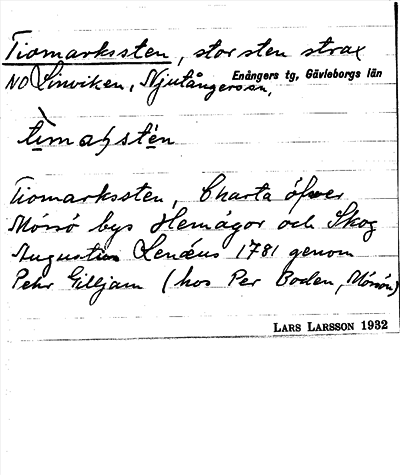 Tiomarkssten, stor sten strax
NO Linviken, Njutångers sn, Enångers tg, Gävleborgs län
Tiomarkssten, Charta öfwer
Mössö bys Hemägor och Skog
Augustus Lenæus 1781 genom
Pehr Gilljam (hos Per Boden, Mössön)
LARS LARSSON 1932